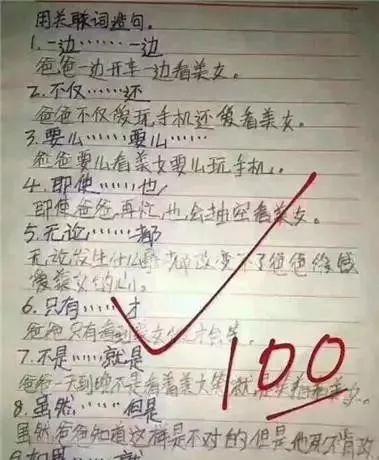 用关联词造句。
1.一边……一边
爸爸一边开车一边看美女。
2.不仅……还
爸爸不仅爱玩手机还爱看美女。
3.要么……要么……
爸爸要么看美女要么玩手机。
4.即使……也
即使爸爸,再忙,也会抽空看美女。
5.无论……都
无论发生什么都改变不了爸爸
爱美女的心。
6.只有……才
爸爸只有看到美女才会笑。
7.不是……就是
爸爸一天到晚不是看着美女笑就是
8.虽然……但是
虽然爸爸知道这样是不对的但是他死不肯改
100